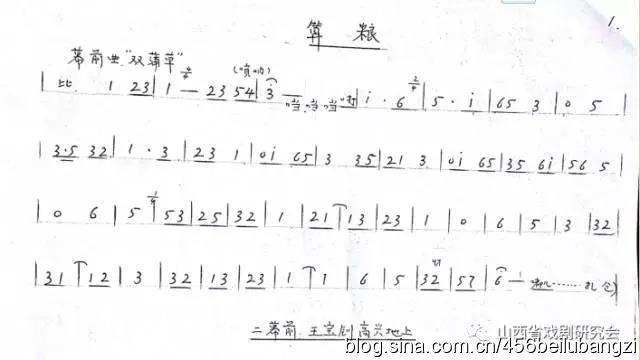 算 粮
1.
幕前曲"双蒲草"
(唢呐)
| 比 1 23 | 1 — 23 54 | 3 — 当当当 | i · 6 2/4 | 5 · i | 65 3 | 0 5 |
| 3·5 32 | 1 · 3 | 23 1 | 0i 65 | 3 35 | 21 3 | 0i 65 | 35 6i | 56 5 |
| 0 6 | 5 1/4 | 53 | 25 | 32 | 1 | 21 | 13 | 23 | 1 | 0 | 6 | 5 | 3 | 32 |
| 31 | 12 | 3 | 32 | 13 | 23 | 1 | 1 | 6 | 5 | 32 | 57 | 6 — …… 扎仓)
二幕前 王宝钏高兴地上
山西省戏剧研究会
blog.sina.com.cn/456beilubangzi